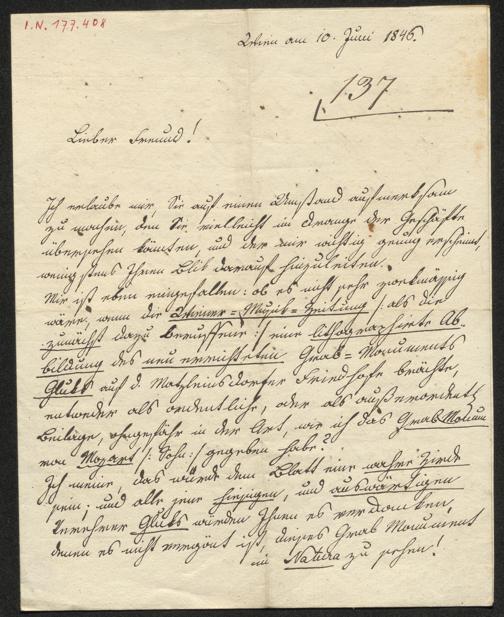 I.N. 177.408
Wien am 10. Juni 1846.
137
Lieber Freund!
Ich erlaube mir, Sie auf einen Umstand aufmerksam
zu machen, den Sie vielleicht im Drange der Geschäfte
übersehen könnten, und der mir wichtig genug erscheint,
wenigstens Ihren Blik darauf hinzuleiten.
Mir ist eben eingefallen: ob es nicht sehr zwekmässig
wäre, wenn die Wiener=Musik=Zeitung /: als die
zunächst dazu berufene :/ eine lithographirte Ab-
bildung des neu errichteten Grab=Monuments
Gluks auf d. Matzleinsdorfer Friedhofe brächte,
entweder als ordentliche, oder als außerordentl.
Beilage, ohngefähr in der Art, wie ich das Grab Monum
von Mozart /: Sohn :/ gegeben habe?
Ich meine, das würde dem Blatt eine wahre Zierde
sein; und alle jene hiesigen, und auswärtigen
Verehrer Gluks würden Ihnen es verdanken,
denen es nicht vergönt ist, dieses Grab Monument
in Natura zu sehen!